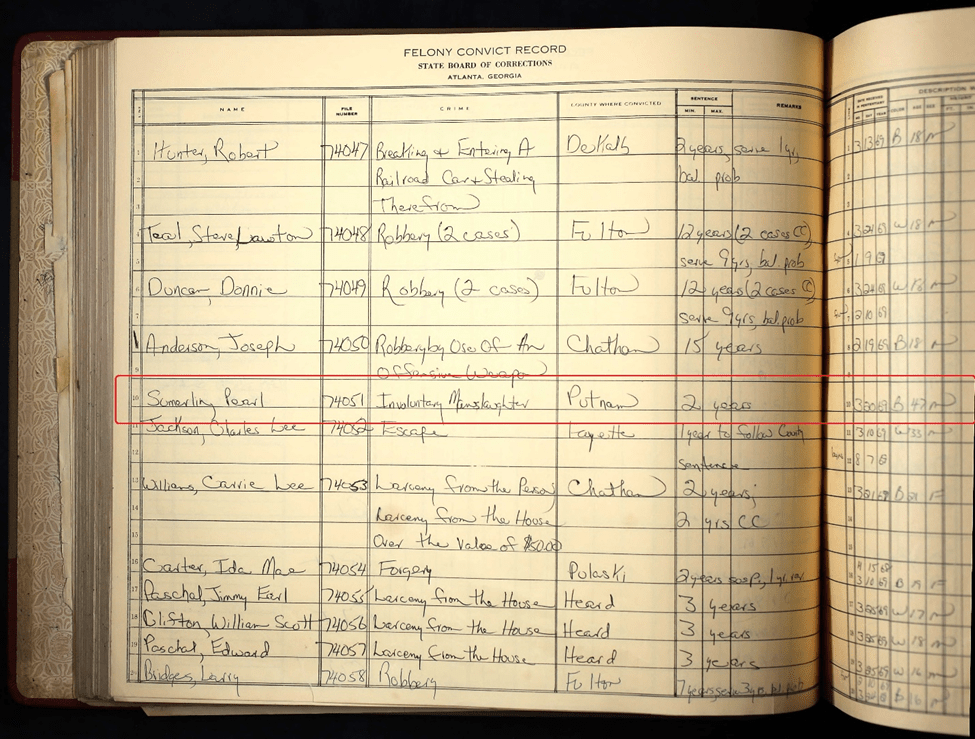 FELONY CONVICT RECORD
STATE BOARD OF CORRECTIONS
ATLANTA, GEORGIA
NAME FILE NUMBER CRIME COUNTY WHERE CONVICTED SENTENCE MIN. MAX. REMARKS DESCRIPTION
1 Hunter, Robert 74047 Breaking & Entering A DeKalb 2 years, serve 1 yr, B 18 M
2 Railroad Car & Stealing bal. prob
3 Therefrom
4 Steve Lawton 74048 Robbery (2 cases) Fulton 12 years (2 cases CC) 3 24 69 W 18 M
5 serve 9 yrs, bal. prob
6 Duncan, Donnie 74049 Robbery (2 cases) Fulton 12 years (2 cases C) 3 24 69 W 18 M
7 serve 9 yrs, bal. prob 2 10 69
8 Anderson, Joseph 74050 Robbery by Use Of An Chatham 15 years 2 19 69 B 18 M
9 Offensive Weapon
10 Sumerlin, Pearl 74051 Involuntary Manslaughter Putnam 2 years 3 20 69 B 47 M
11 Jackson, Charles Lee 74052 Escape Fayette 1 year to follow County 3 10 69 W 33 M
12 sentence
13 Williams, Carrie Lee 74053 Larceny from the Person Chatham 2 years; B 21 F
14 Larceny from the House 2 yrs CC
15 Over the Value of $50.00
16 Carter, Ida Mae 74054 Forgery Pulaski 2 years susp., 1 yr. B F
17 Paschal, Jimmy Earl 74055 Larceny from the House Heard 3 years W 17 M
18 Clifton, William Scott 74056 Larceny from the House Heard 3 years W 18 M
19 Paschal, Edward 74057 Larceny from the House Heard 3 years W 16 M
20 Bridges, Larry 74058 Robbery Fulton 7 years serve 3 yrs, bal. prob B 16 M